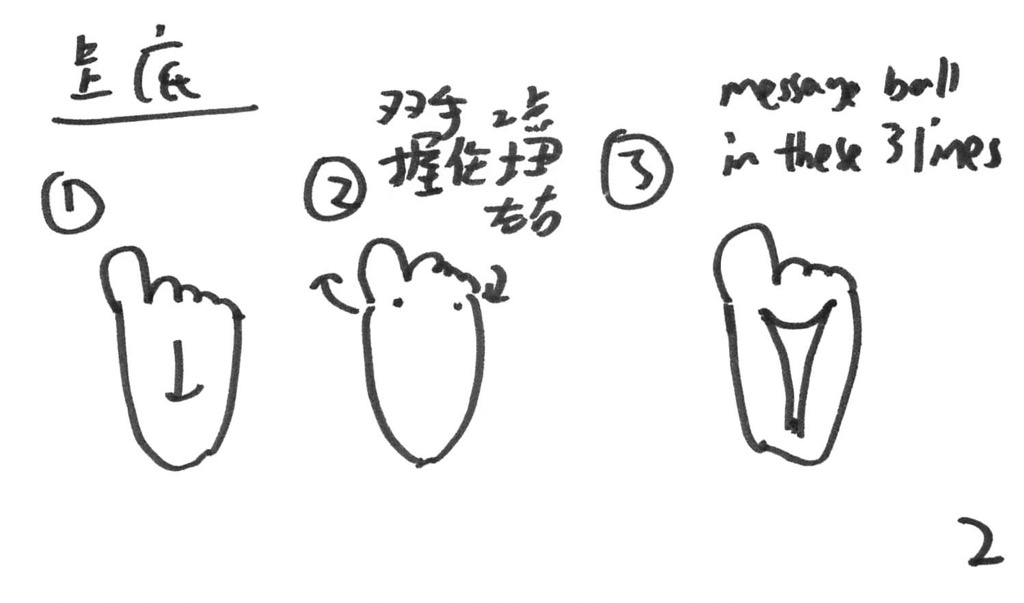 足底
①
②
双手 2点
握住 扭
左右
③
message ball
in these 3 lines
2